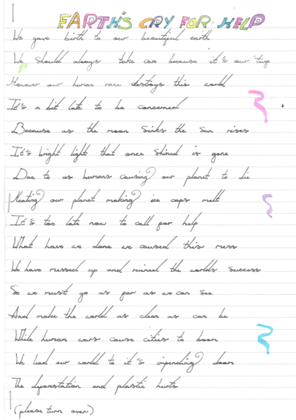 EARTH'S CRY FOR HELP
We gave birth to our beautiful earth
We should always take care because it's our
However our human race destroys this world
It's a bit late to be concerned
Because as the moon sinks the sun rises
It's bright light that once shined is gone
Due to us humans causing our planet to die
Heating our planet making ice caps melt
It's too late now to call for help
What have we done we caused this mess
We have messed up and ruined the worlds success
So we must go as far as we can see
And make the world as clear as can be
While human wars cause cities to boom
We lead our world to it's impending doom
The deforestation and plastic hurts
(please turn over)